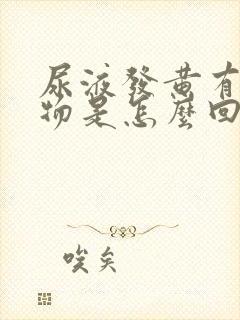 尿液發黃有
物是怎麼回
唉矣